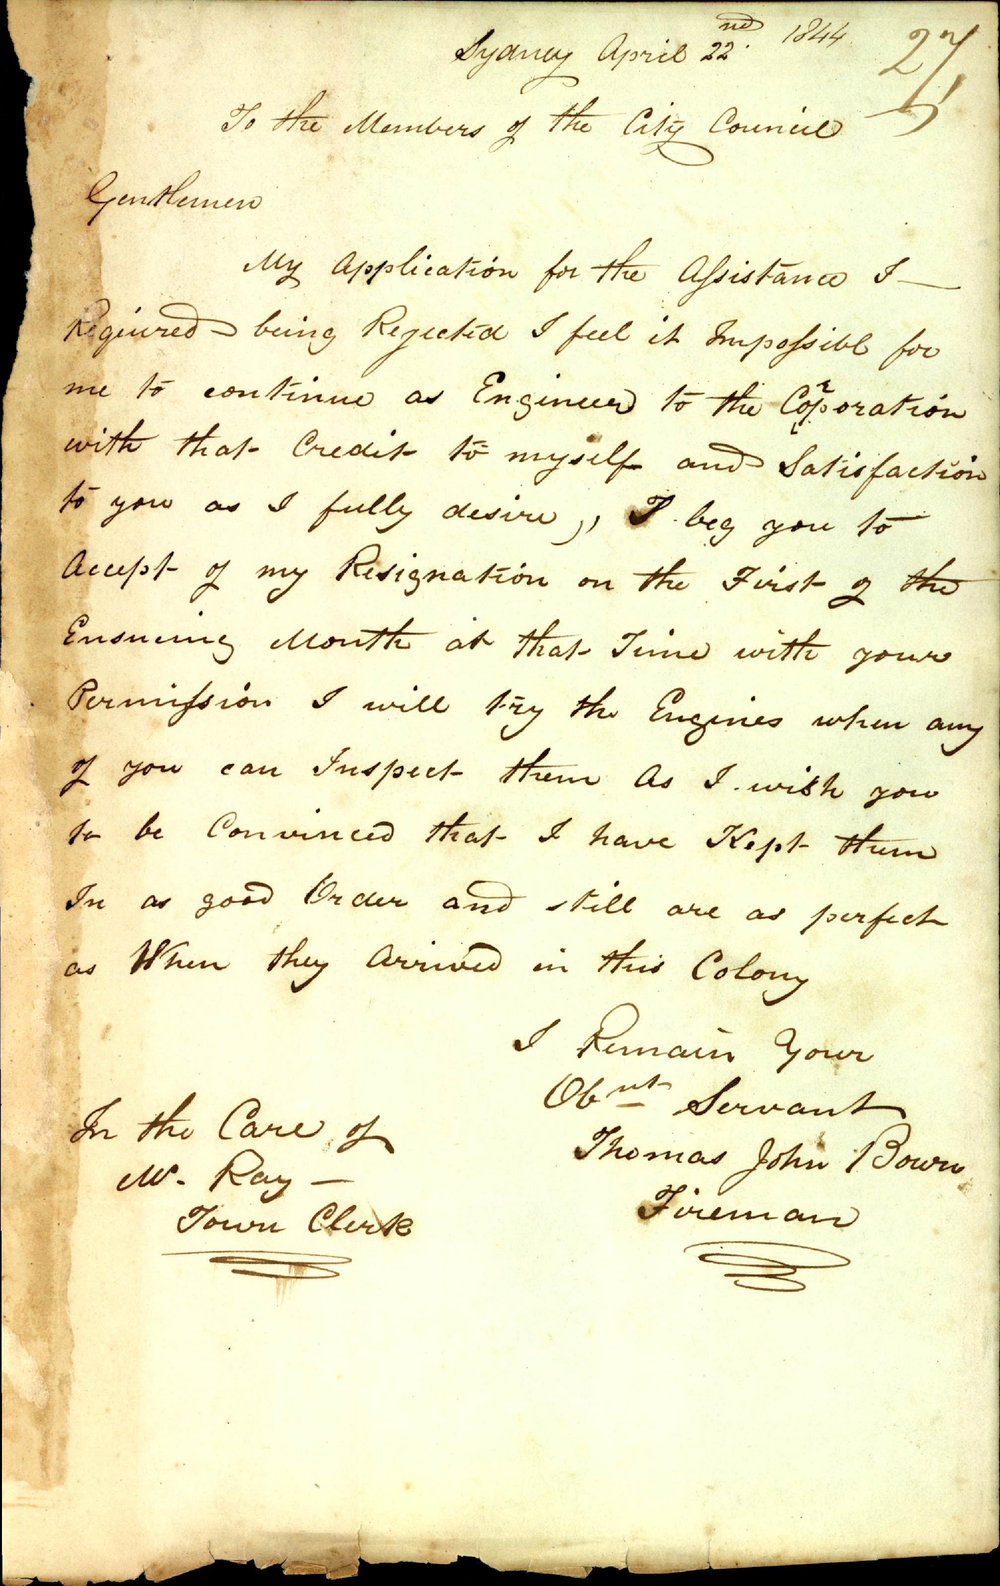 Sydney April 22nd 1844
27
To the Members of the City Council
Gentlemen
My Application for the Assistance I
Required being Rejected I feel it Impossibl for
me to continue as Engineer to the Corporation
with that Credit to myself and Satisfaction
to you as I fully desire,, I beg you to
Accept of my Resignation on the First of the
Ensueing Month at that Time with your
Permission I will try the Engines when any
of you can Inspect them As I wish you
to be Convinced that I have Kept them
In as good Order and still are as perfect
as When they Arrived in this Colony
I Remain Your
Obnt Servant
Thomas John Bown
Fireman
In the Care of
Mr. Ray
Town Clerk